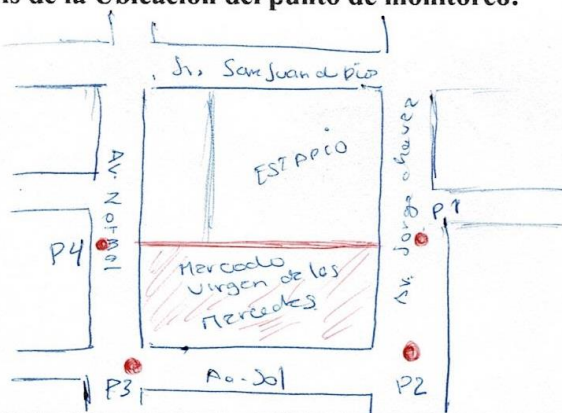 is de la Ubicación del punto de monitoreo:
Jr. San Juan d Dios
ESTADIO
Av. Normal
Av. Jorge chavez
P1
P4
Mercado
Virgen de las
Mercedes
P3
Av. Sol
P2